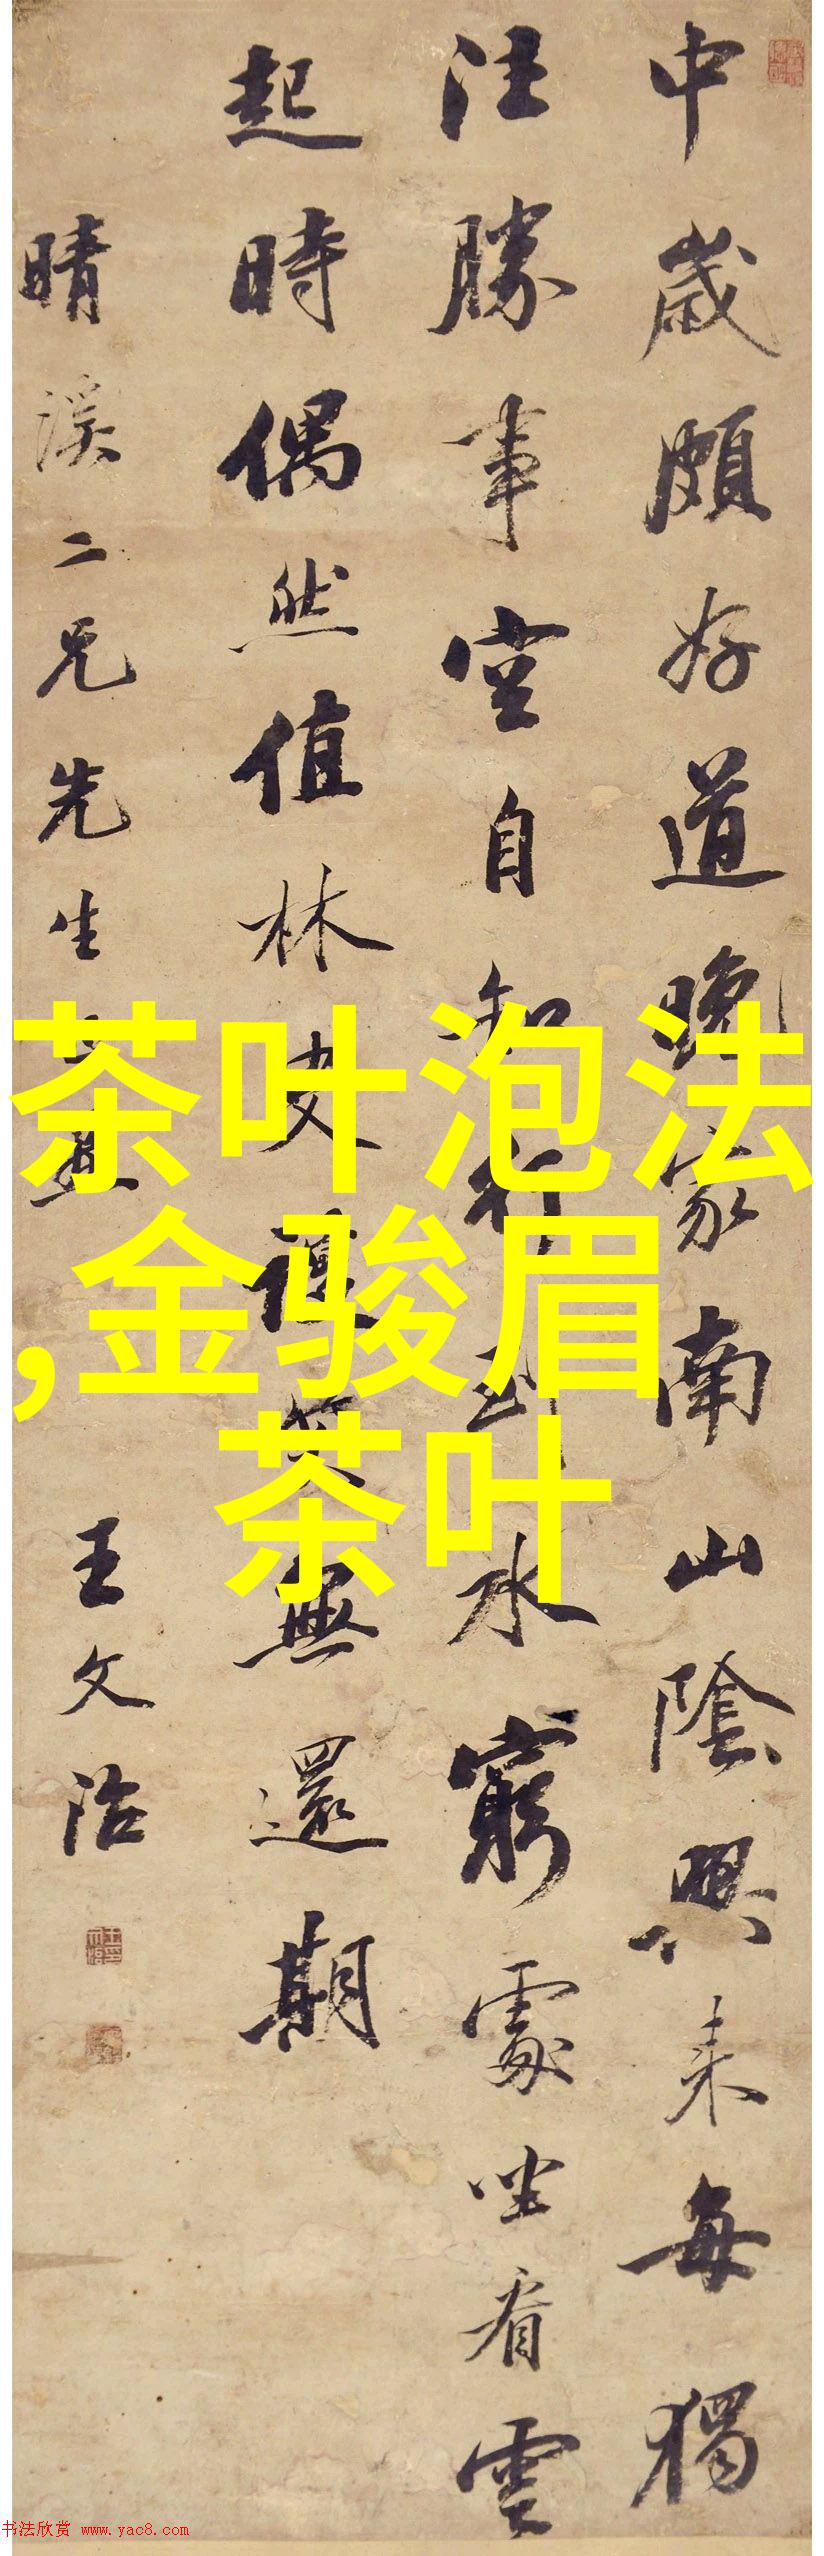 中歲頗好道晚家南山陲興来每獨
往勝事空自知行到水窮處坐看雲
起時偶然值林叟談笑無還期
晴溪二兄先生
王文治
茶叶泡法
,金骏眉
茶叶
书法欣赏 www.yac8.com